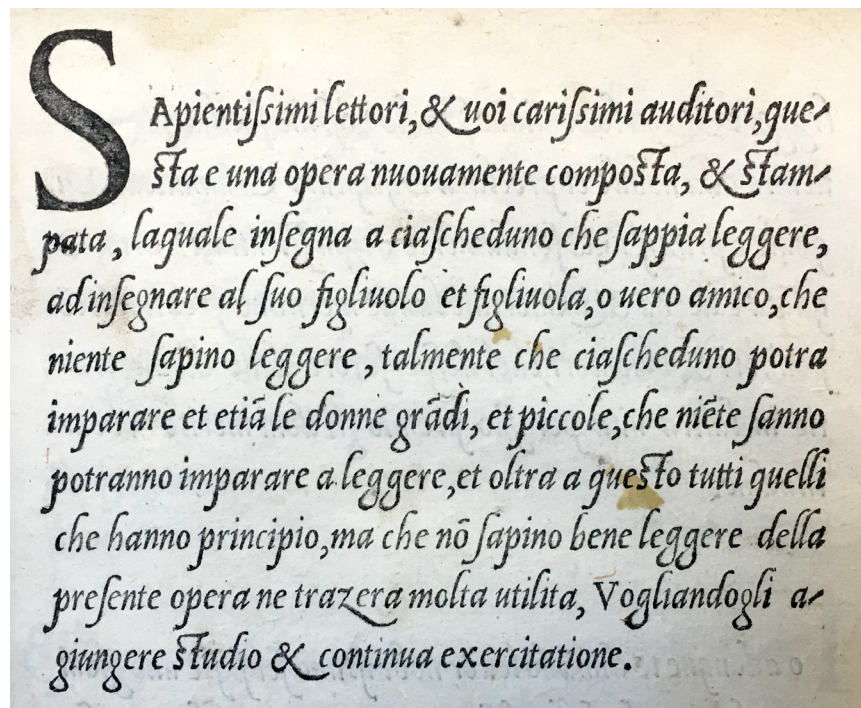 SApientiſsimi lettori, & uoi cariſsimi auditori, que-
ſta e una opera nuouamente compoſta, & ſtam-
pata, laquale inſegna a ciaſcheduno che ſappia leggere,
ad inſegnare al ſuo figliuolo et figliuola, o uero amico, che
niente ſapino leggere, talmente che ciaſcheduno potra
imparare et etiā le donne grādi, et piccole, che niēte ſanno
potranno imparare a leggere, et oltra a queſto tutti quelli
che hanno principio, ma che nō ſapino bene leggere della
preſente opera ne trazera molta utilita, Vogliandogli a-
giungere ſtudio & continua exercitatione.